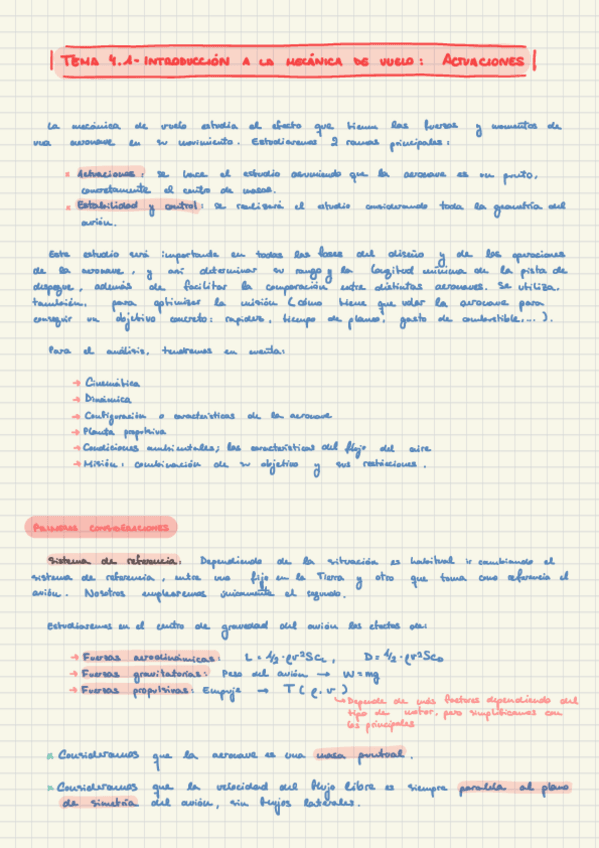 TEMA 4.1- INTRODUCCIÓN A LA MECÁNICA DE VUELO: ACTUACIONES
La mecánica de vuelo estudia el efecto que tienen las fuerzas y momentos de
una aeronave en su movimiento. Estudiaremos 2 ramas principales:
Actuaciones: se hace el estudio asumiendo que la aeronave es un punto,
concretamente el centro de masas.
Estabilidad y control: se realizará el estudio considerando toda la geometría del
avión.
Este estudio será importante en todas las fases del diseño y de las operaciones
de la aeronave, y así determinar su rango y la longitud mínima de la pista de
despegue, además de facilitar la comparación entre distintas aeronaves. Se utiliza,
también, para optimizar la misión (cómo tiene que volar la aeronave para
conseguir un objetivo concreto: rapidez, tiempo de planeo, gasto de combustible,...).
Para el análisis, tendremos en cuenta:
→ Cinemática
→ Dinámica
→ Configuración o características de la aeronave
→ Planta propulsiva
→ Condiciones ambientales; las características del flujo del aire
→ Misión: combinación de su objetivo y sus restricciones.
PRIMERAS CONSIDERACIONES
Sistema de referencia: Dependiendo de la situación es habitual ir cambiando el
sistema de referencia, entre uno fijo en la Tierra y otro que toma como referencia el
avión. Nosotros emplearemos únicamente el segundo.
Estudiaremos en el centro de gravedad del avión los efectos de:
→ Fuerzas aerodinámicas: L = 1/2 · ρv²SCL , D = 1/2 · ρv²SCD
→ Fuerzas gravitatorias: Peso del avión → W=mg
→ Fuerzas propulsivas: Empuje → T(ρ, v)
↳ Depende de más factores dependiendo del
tipo de motor, pero simplificamos con
los principales
Consideramos que la aeronave es una masa puntual.
Consideramos que la velocidad del flujo libre es siempre paralela al plano
de simetría del avión, sin flujos laterales.